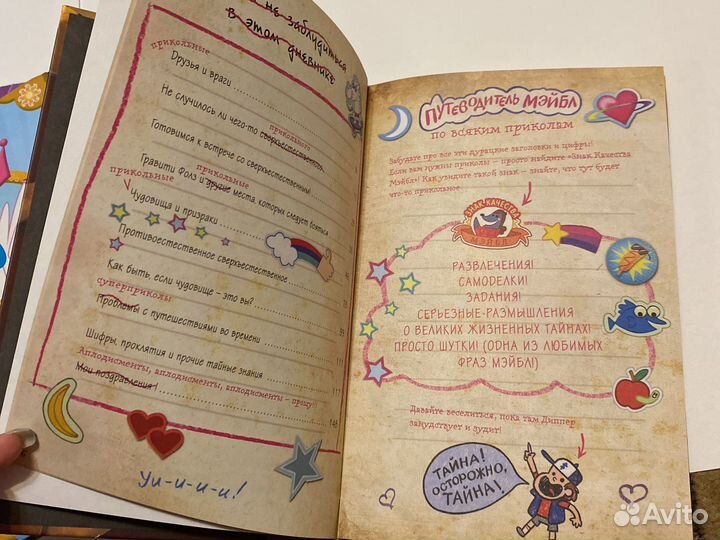 не заблудиться
в этом дневнике
прикольные
Друзья и враги
Не случилось ли чего-то сверхъестественного
прикольного
Готовимся к встрече со сверхъестественным!
прикольные
Гравити Фолз и другие места, которых следует бояться
прикольные
Чудовища и призраки
Противоестественное сверхъестественное
46
Как быть, если чудовище – это вы?
суперприколы
Проблемы с путешествиями во времени
99
Шифры, проклятия и прочие тайные знания
111
Аплодисменты, аплодисменты, аплодисменты – прошу!)
Мои поздравления!
146
Уи-и-и-и!
ПУТЕВОДИТЕЛЬ МЭЙБЛ
по всяким приколам
Забудьте про все эти дурацкие заголовки и цифры!
Если вам нужны приколы – просто найдите «Знак Качества
Мэйбл»! Как увидите такой знак – знайте, что тут будет
что-то прикольное.
ЗНАК КАЧЕСТВА
МЭЙБЛ
РАЗВЛЕЧЕНИЯ!
САМОДЕЛКИ!
ЗАДАНИЯ!
СЕРЬЕЗНЫЕ РАЗМЫШЛЕНИЯ
О ВЕЛИКИХ ЖИЗНЕННЫХ ТАЙНАХ!
ПРОСТО ШУТКИ! (ОДНА ИЗ ЛЮБИМЫХ
ФРАЗ МЭЙБЛ!)
Давайте веселиться, пока там Диппер
занудствует и зудит!
ТАЙНА!
ОСТОРОЖНО,
ТАЙНА!
Avito